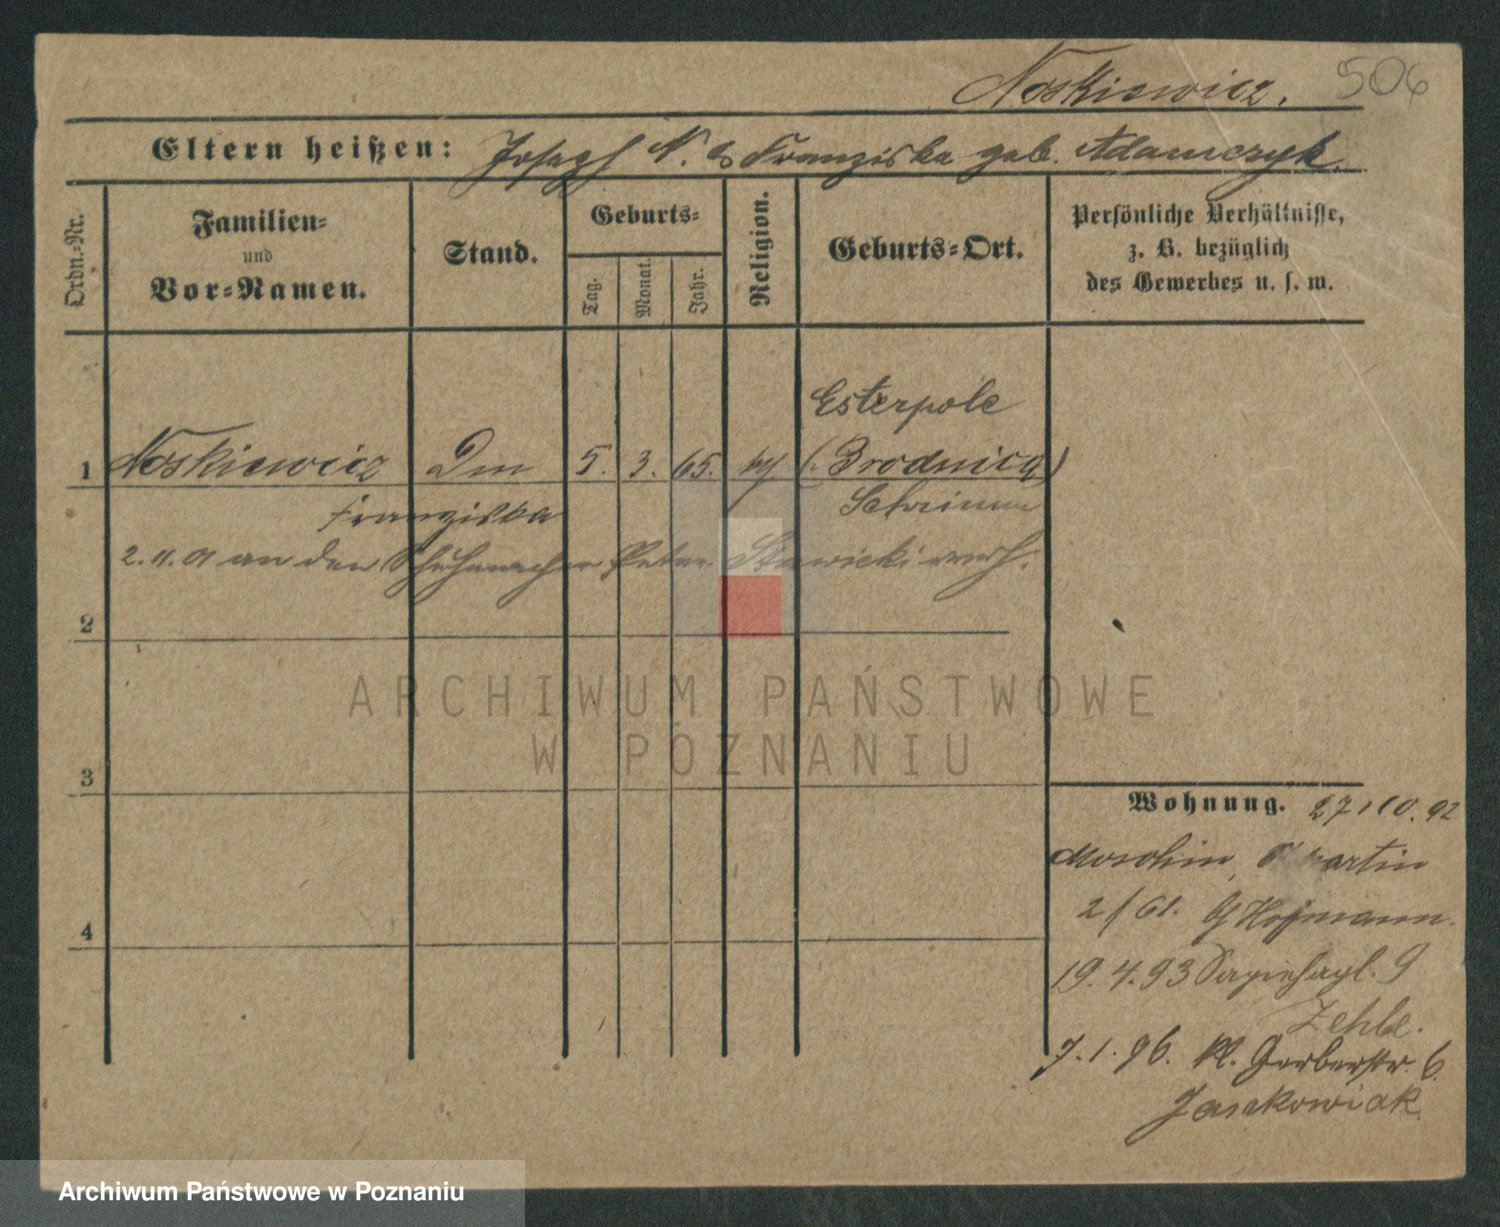 Noskiewicz. 506
Eltern heißen: Joseph N. & Franziska geb. Adamczyk.
Ordn.-Nr.
Familien-
und
Vor-Namen.
Stand.
Geburts-
Tag.
Monat.
Jahr.
Religion.
Geburts-Ort.
Persönliche Verhältnisse,
z. B. bezüglich
des Gewerbes u. s. w.
Esterpole
1 Noskiewicz 5. 3. 65. (Brodnica)
Franziska Schrimm
2. 11. 01 an den Schuhmacher Peter Stawicki verh.
2
3
4
Wohnung. 27/10. 92
Moschin, Martin
2/61. Hofmann.
19. 4. 93 9
Zehbe.
7. 1. 96. Kl. Gerberstr. 6.
Jaszkowiak
ARCHIWUM PAŃSTWOWE
W POZNANIU
Archiwum Państwowe w Poznaniu